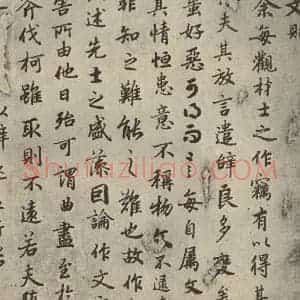 余每觀材士之作竊有以得其
夫其放言遣辭良多變矣
蚩好惡可得而言每自屬文
其情恒患意不稱物文不逮
非知之難能之難也故作
述先士之盛藻因論作文
害所由他日殆可謂曲盡至於
斧伐柯雖取則不遠若夫